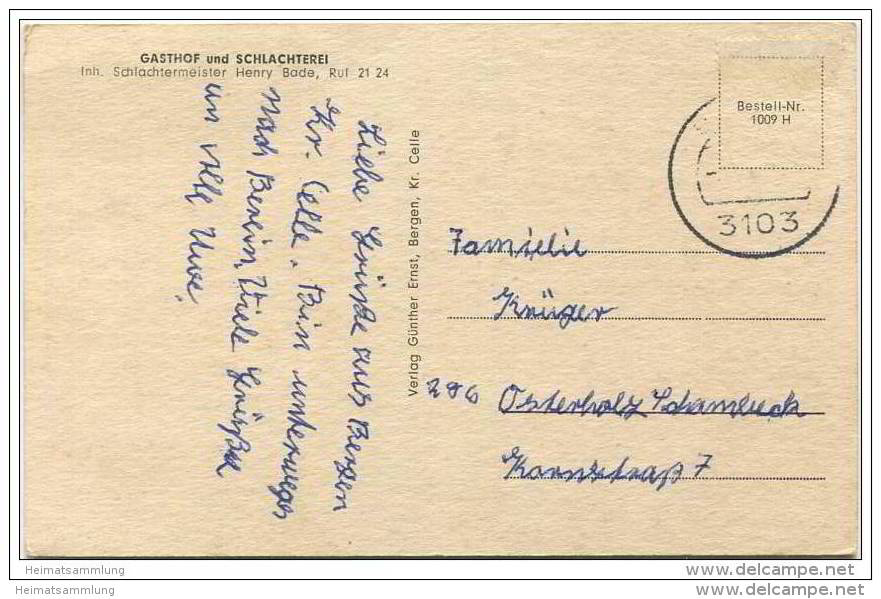 GASTHOF und SCHLACHTEREI
Inh. Schlachtermeister Henry Bade, Ruf 21 24
Liebe Grüße aus Bergen
Kr. Celle. Bin unterwegs
nach Berlin. Viele Grüße
an alle Uwe.
Verlag Günther Ernst, Bergen, Kr. Celle
Bestell-Nr.
1009 H
3103
Familie
Krüger
286 Osterholz Scharmbeck
Kornstraß 7
Heimatsammlung
Heimatsammlung
www.delcampe.net
www.delcampe.net